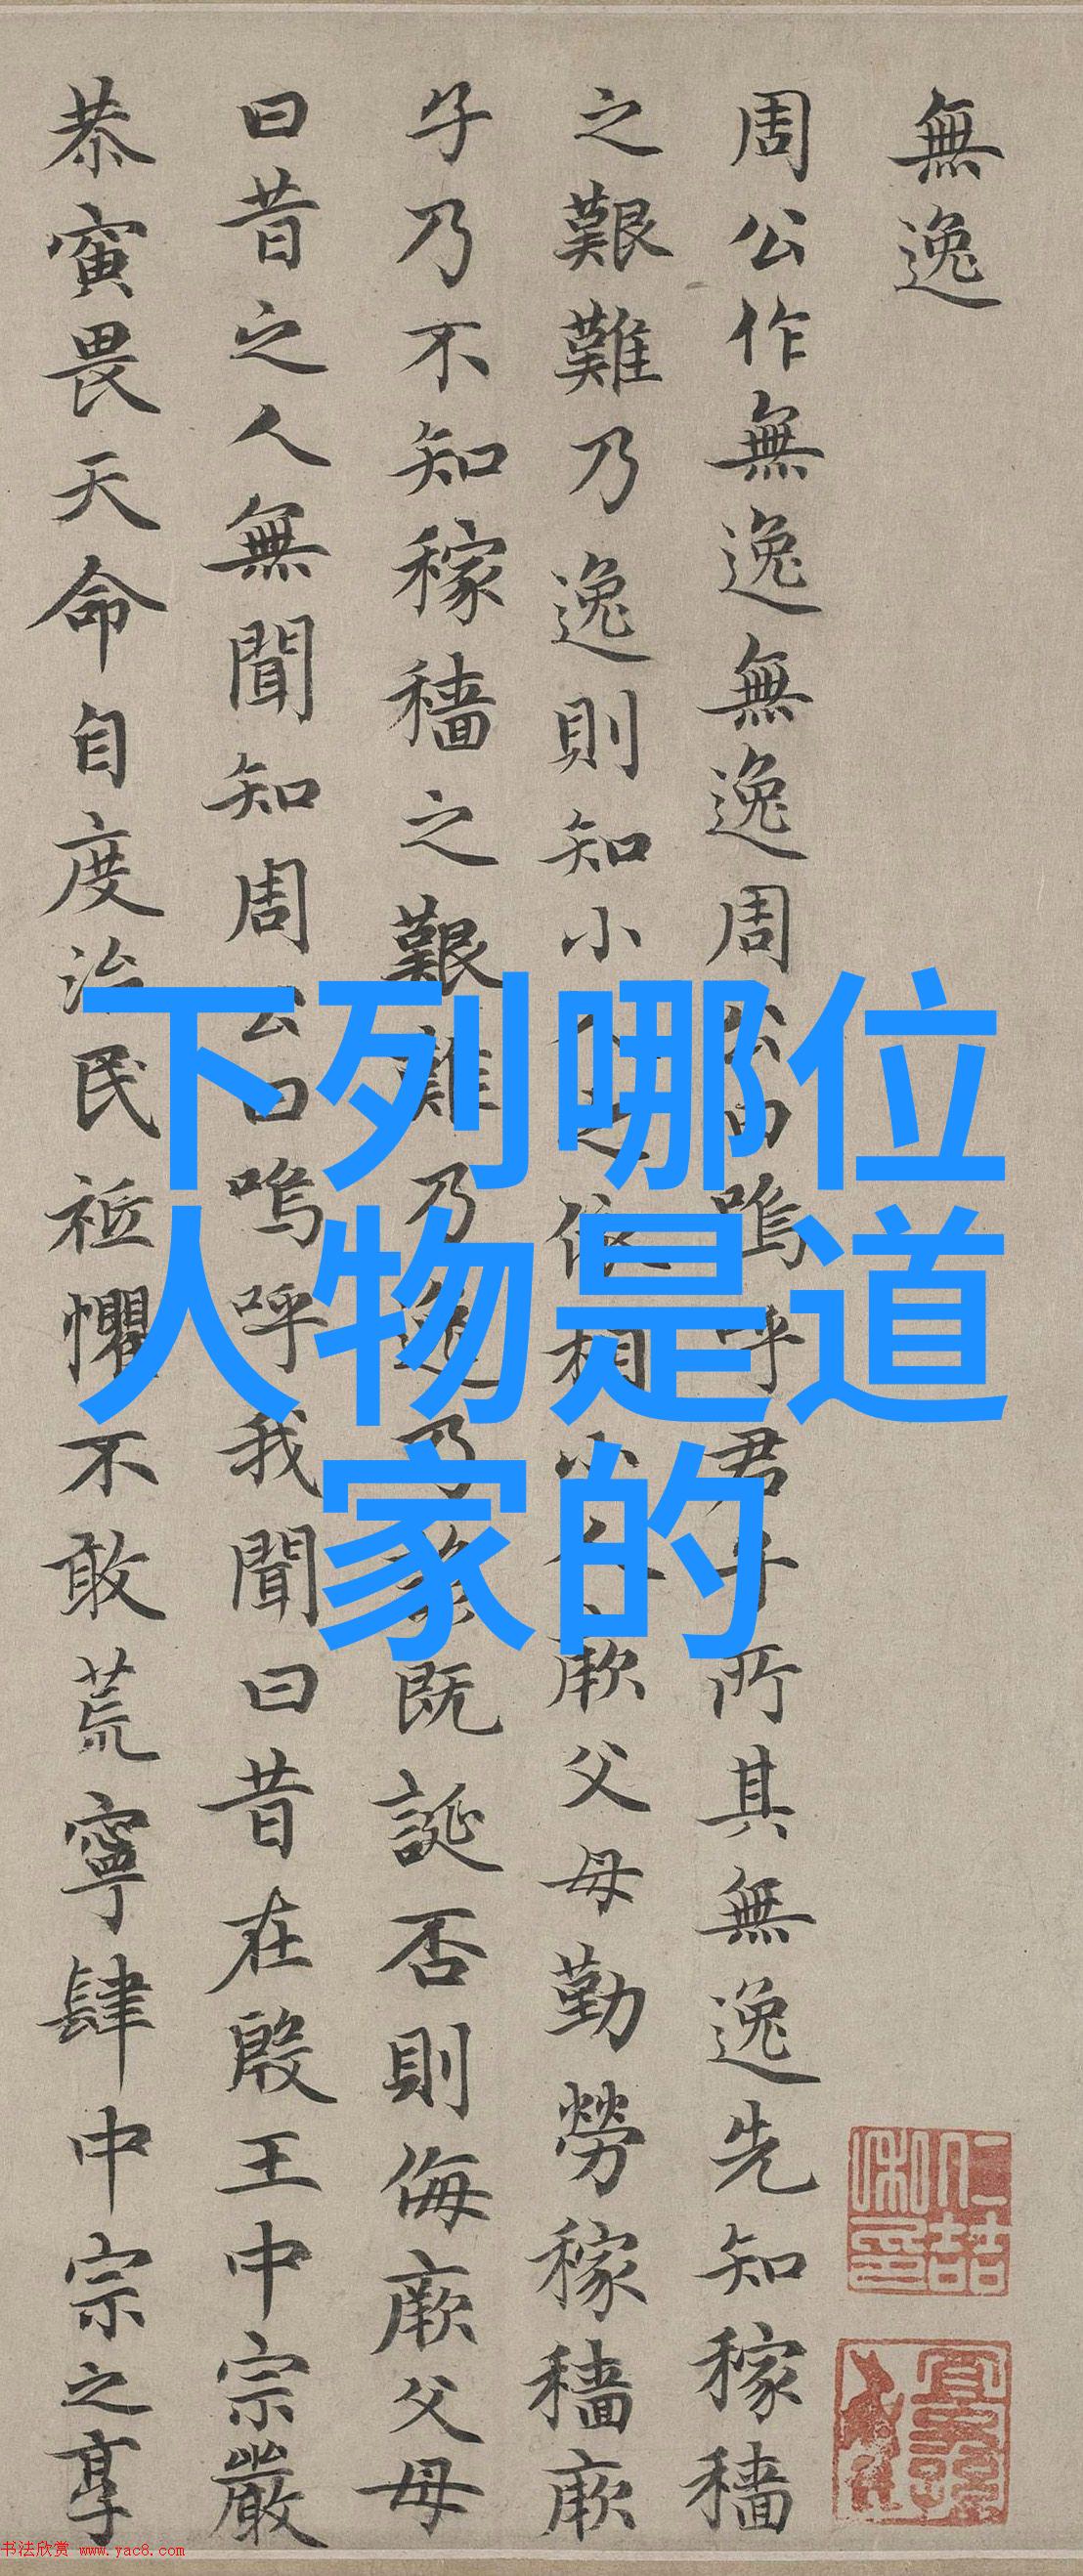 無逸
周公作無逸無逸周公曰嗚呼君子所其無逸先知稼穡
之艱難乃逸則知小人之依相小人厥父母勤勞稼穡厥
子乃不知稼穡之艱難乃逸乃諺既誕否則侮厥父母
曰昔之人無聞知周公曰嗚呼我聞曰昔在殷王中宗嚴
恭寅畏天命自度治民祗懼不敢荒寧肆中宗之享
下列哪位
人物是道
家的
书法欣赏 www.yac8.com